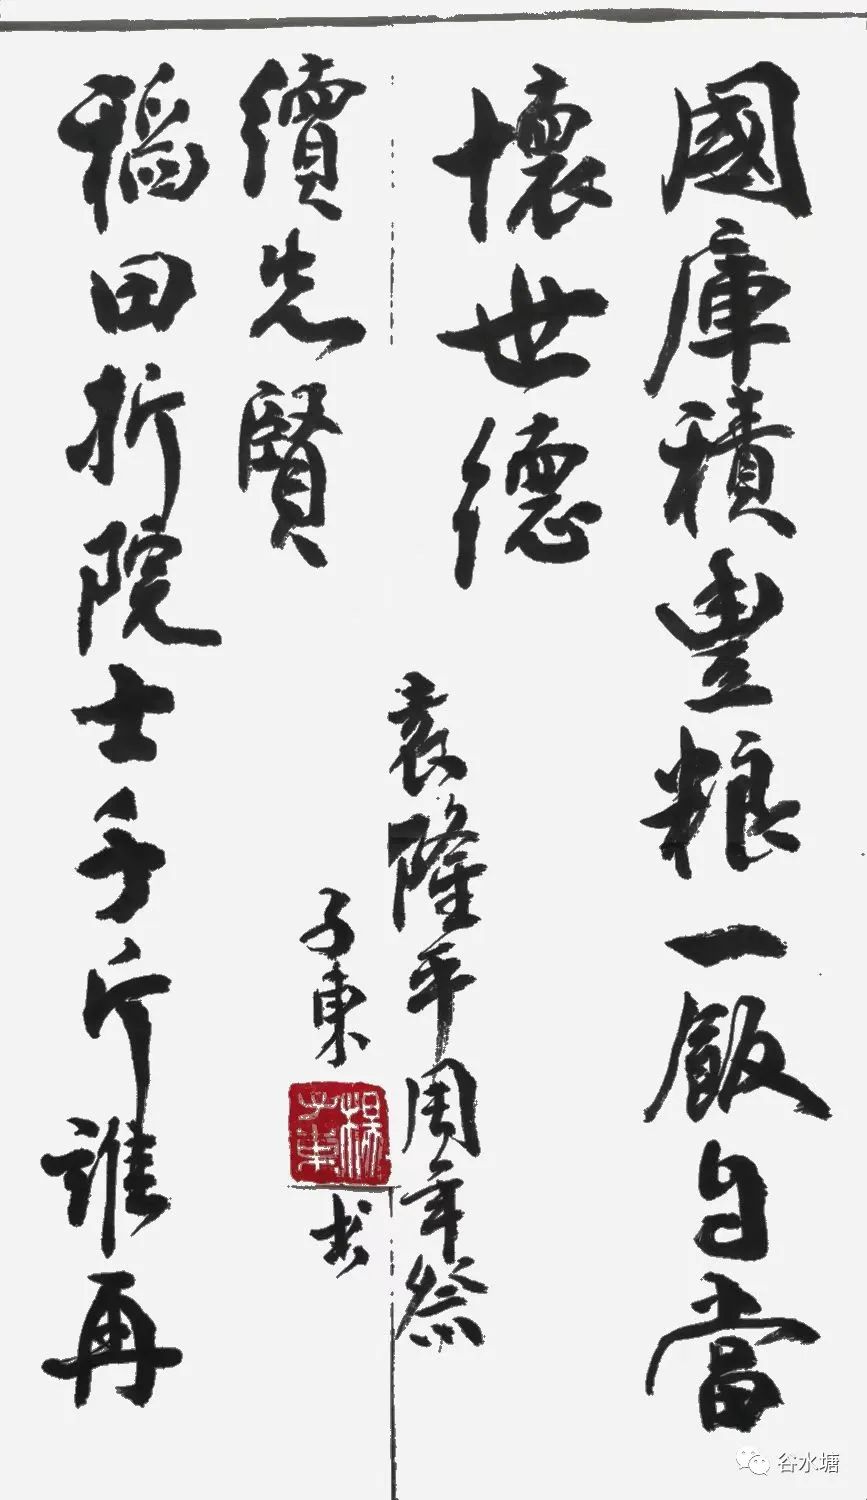 國庫積豐粮一飯自當
懷世德
稻田折院士千斤誰再
續先賢
袁隆平周年祭
子東书
楊
子東
谷水塘